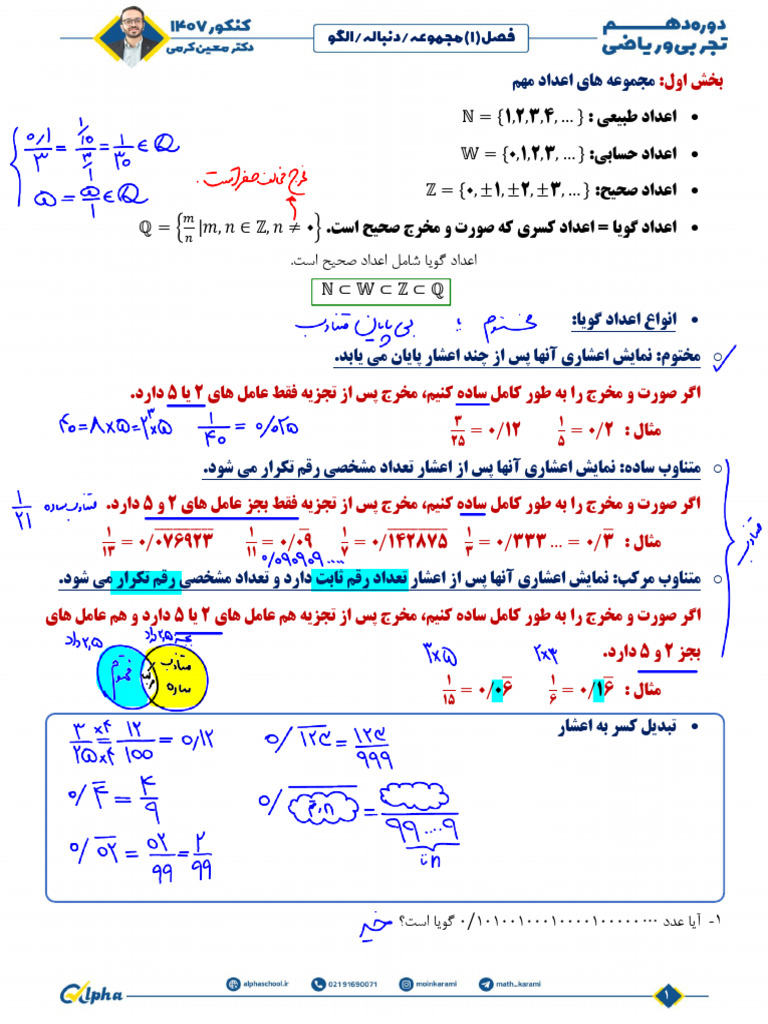 دوره دهم
تجربی و ریاضی
فصل(۱) مجموعه/دنباله/الگو
کنکور ۱۴۰۷
دکتر معین کرمی
بخش اول: مجموعه های اعداد مهم
• اعداد طبیعی : ℕ = {۱,۲,۳,۴, ... }
• اعداد حسابی: 𝕎 = {۰,۱,۲,۳, ... }
• اعداد صحیح: ℤ = {۰, ±۱, ±۲, ±۳, ... }
۰/۱/۳ = ۱/10/۳/۱ = 1/30 ∈ Q
۵ = ۵/1 ∈ Q
مخرج مخالف صفر است.
• اعداد گویا = اعداد کسری که صورت و مخرج صحیح است. ℚ = {m/n |m, n ∈ ℤ, n ≠ ۰}
اعداد گویا شامل اعداد صحیح است.
ℕ ⊂ 𝕎 ⊂ ℤ ⊂ ℚ
• انواع اعداد گویا: مختوم یا بی پایان متناوب
○ مختوم: نمایش اعشاری آنها پس از چند اعشار پایان می یابد.
اگر صورت و مخرج را به طور کامل ساده کنیم، مخرج پس از تجزیه فقط عامل های ۲ یا ۵ دارد.
مثال : ۱/۵ = ۰/۲ ۳/۲۵ = ۰/۱۲ 1/40 = ۰/۰۲۵ ۴۰=۸×۵=۲^۳×۵
○ متناوب ساده: نمایش اعشاری آنها پس از اعشار تعداد مشخصی رقم تکرار می شود.
اگر صورت و مخرج را به طور کامل ساده کنیم، مخرج پس از تجزیه فقط بجز عامل های ۲ و ۵ دارد. متناوب ساده 1/21
متناوب
مثال : ۱/۳ = ۰/۳۳۳ ... = ۰/۳̅ ۱/۷ = ۰/۱۴۲۸۷۵ ۱/۱۱ = ۰/۰۹ ۱/۱۳ = ۰/۰۷۶۹۲۳
۰/۰۹۰۹۰۹....
○ متناوب مرکب: نمایش اعشاری آنها پس از اعشار تعداد رقم ثابت دارد و تعداد مشخصی رقم تکرار می شود.
اگر صورت و مخرج را به طور کامل ساده کنیم، مخرج پس از تجزیه هم عامل های ۲ یا ۵ دارد و هم عامل های
بجز ۲ و ۵ دارد.
۲×۳ ۳×۵
۲،۵ داد
بجز ۲،۵ داد
مختوم
مرکب
متناوب
ساده
مثال : ۱/۶ = ۰/۱۶̅ ۱/۱۵ = ۰/۰۶̅
• تبدیل کسر به اعشار
۳×۴/۲۵×۴ = ۱۲/100 = ۰/۱۲
۰/۴̅ = ۴/9
۰/۰۲ = ۰۲/99 = ۲/99
۰/۱۲۴ = ۱۲۴/999
99....9
n تا
۱- آیا عدد ۰/۱۰۱۰۰۱۰۰۰۱۰۰۰۰۱۰۰۰۰۰ ... گویا است؟ خیر
Alpha
alphaschool.ir
021 91690071
moinkarami
math_karami
۱